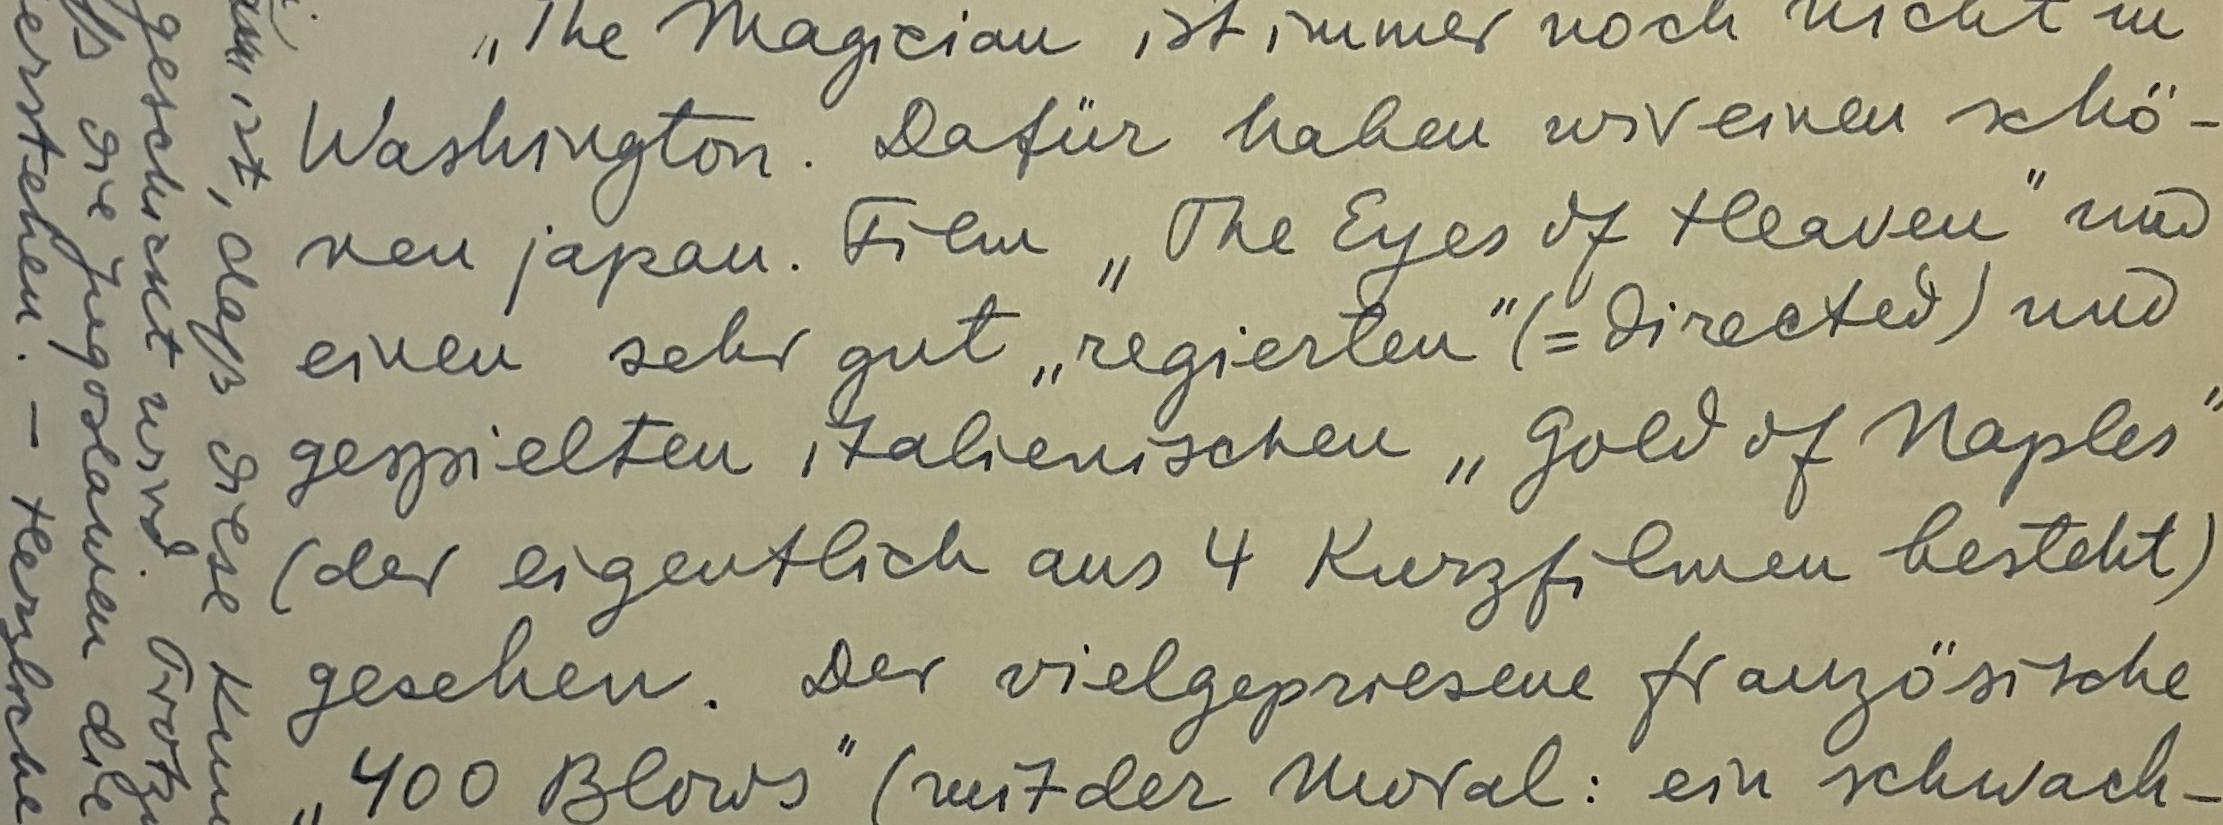 „The Magician ist immer noch nicht in
Washington. Dafür haben wir einen schö-
nen japan. Film „The Eyes of Heaven" und
einen sehr gut „regierten" (= directed) und
gespielten italienischen „Gold of Naples"
(der eigentlich aus 4 Kurzfilmen besteht)
gesehen. Der vielgepriesene französische
„400 Blows" (mit der Moral: ein schwach-
ist, daß diese
geschickt wird. Trotz
die Jugoslawien
verstehen. – Herzliche